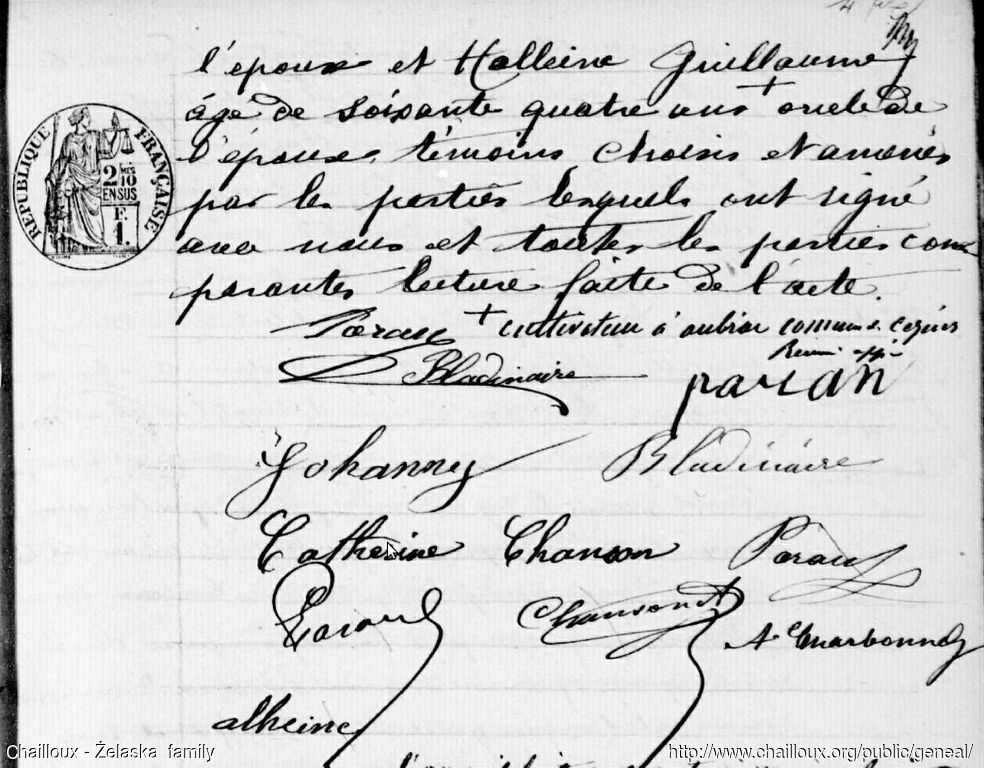 l'époux et Halleine Guillaume
âgé de soixante quatre ans + oncle de
l'époux, témoins choisis et amenés
par les parties lesquels ont signé
avec nous et toutes les parties com
parantes lecture faite de l'acte.
+ cultivateur à aubiac commune
Bladinaire
paran
Johanny Bladinaire
Catherine Chanson
Chanson
alheine
RÉPUBLIQUE FRANÇAISE
2 MES
10
EN SUS
F.
1.
Chailloux - Želaska family
http://www.chailloux.org/public/geneal/